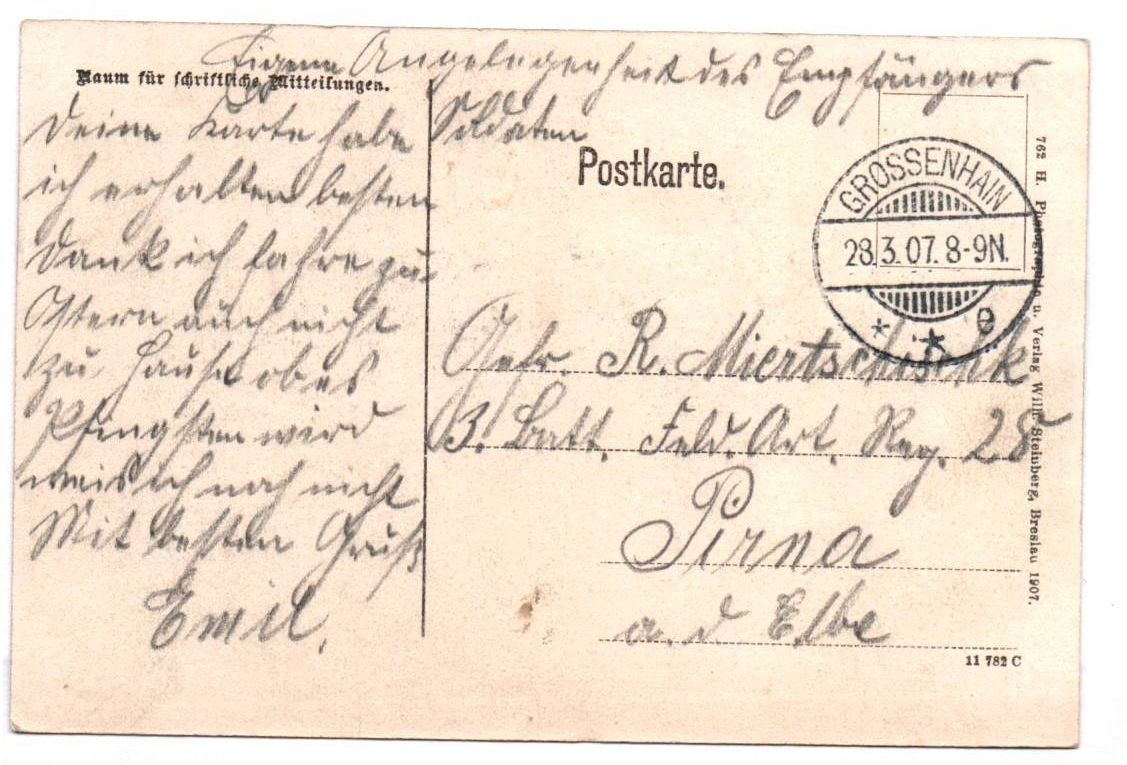 Eigene Angelegenheit des Empfängers
Soldaten
Raum für schriftliche Mitteilungen.
Deine Karte habe
ich erhalten besten
Dank ich fahre zu
Ostern auch nicht
zu Hause ob es
Pfingsten wird
weis ich noch nicht
Mit besten Gruß
Emil.
Postkarte.
GROSSENHAIN
28.3.07. 8-9N.
* * e
Gefr. R. Miertschischk
3. Batt. Feld. Art. Reg. 28
Pirna
a. d Elbe
762 H. Photographie u. Verlag Willi Steinberg, Breslau 1907.
11 782 C